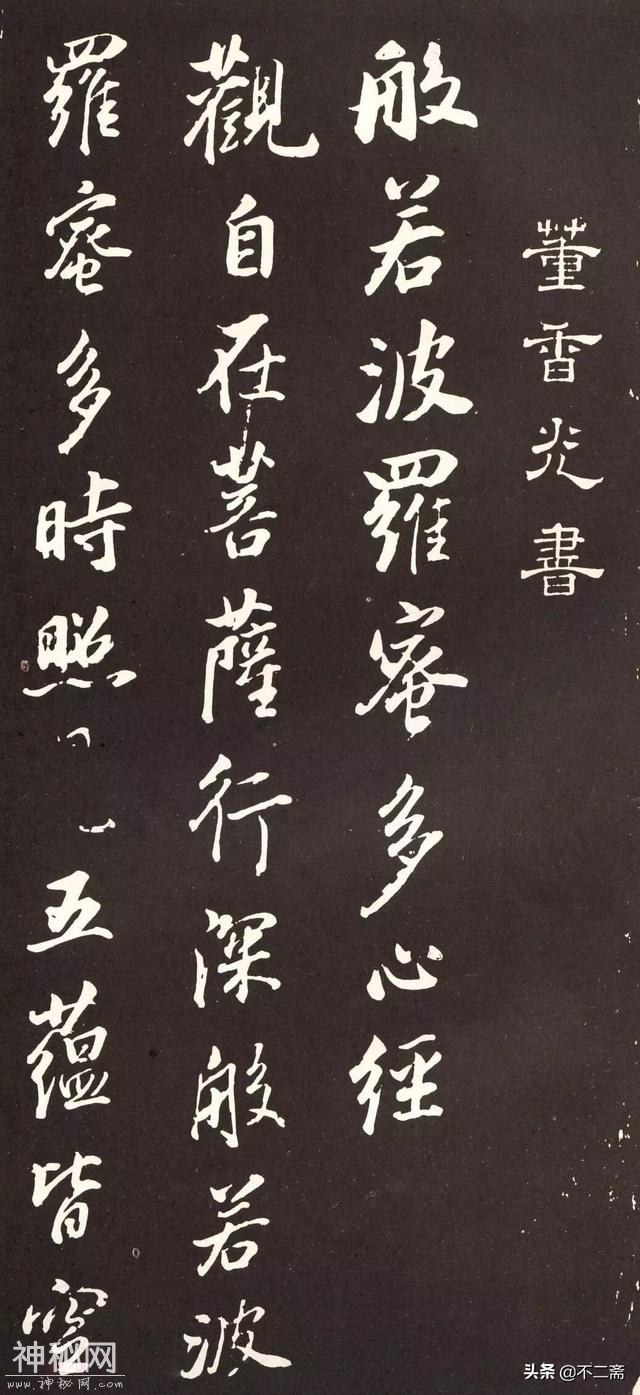 董香光書
般若波羅蜜多心經
觀自在菩薩行深般若波
羅蜜多時照五蘊皆空
神秘网
www.神秘网.com
头条 @不二斋